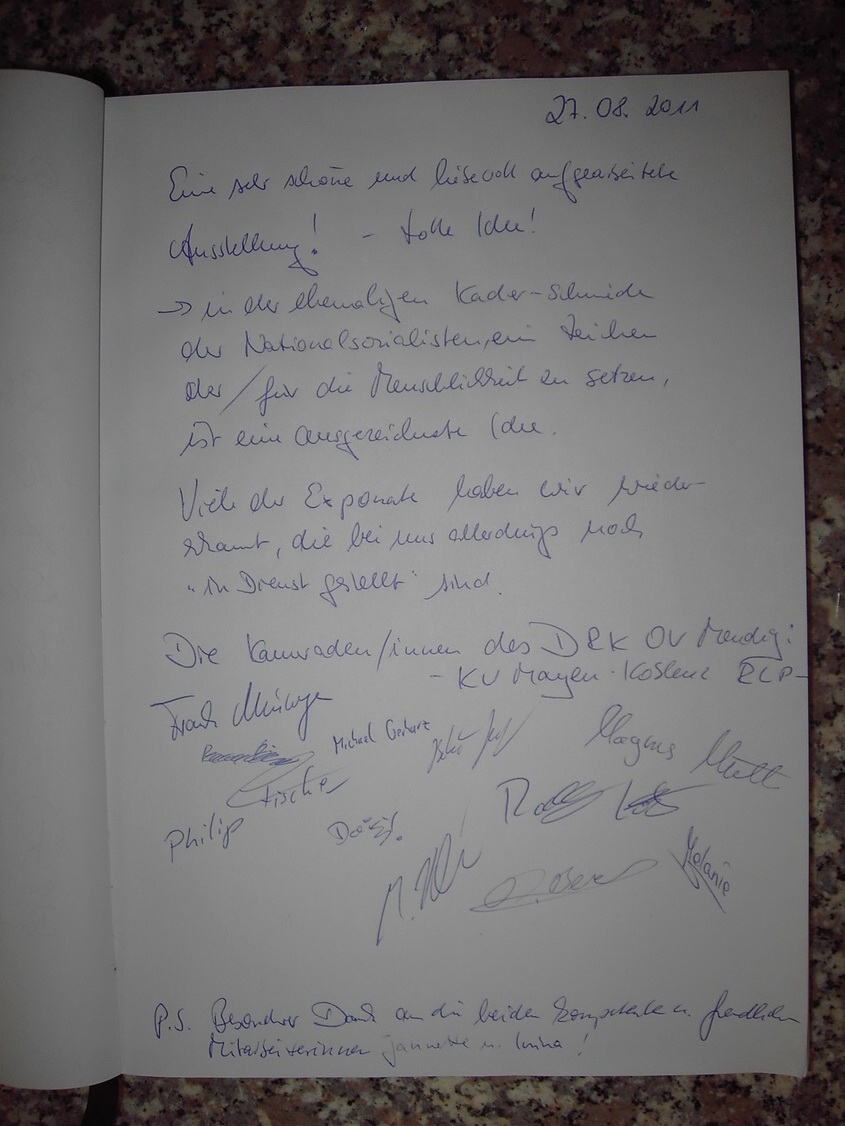 27.08.2011
Eine sehr schöne und liebevoll aufgearbeitete
Ausstellung! - tolle Idee!
→ in der ehemaligen Kader-Schmiede
der Nationalsozialisten, ein Zeichen
der / für die Menschlichkeit zu setzen,
ist eine ausgezeichnete Idee.
Viele der Exponate haben wir wieder-
erkannt, die bei uns allerdings noch
"in Dienst gestellt" sind.
Die Kameraden/innen des DRK OV Mendig:
- KV Mayen-Koblenz RLP-
Frank
Michael Gerhartz
Magnus
Fischer
Philip
Melanie
P.S. Besonderer Dank an die beiden kompetente u. freundlichen
Mitarbeiterinnen Jannette u. Irina!